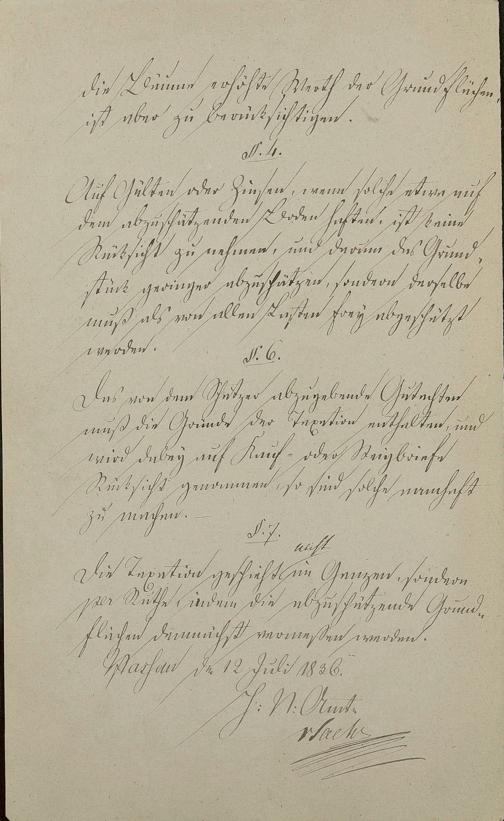 die Bäume erhöhte Werth der Grundflächen,
ist aber zu berücksichtigen.
§. 4.
Auf Gülten oder Zinsen, wenn solche etwa auf
dem abzuschätzenden Boden haften, ist keine
Rücksicht zu nehmen, und darum das Grund-
stück geringer abzuschätzen, sondern derselbe
muß als von allen Lasten frey abgeschätzt
werden.
§. 6.
Das von dem Schätzer abzugebende Gutachten
muß die Gründe der Taxation enthalten, und
wird dabey auf Kauf- oder Steigbriefe
Rücksicht genommen, so sind solche namhaft
zu machen. —
§. 7.
nicht
Die Taxation geschieht im Ganzen, sondern
per Ruthe, indem die abzuschätzende Grund-
flächen demnächst vermessen werden.
den 12 Juli 1836.
H: N: Amt.